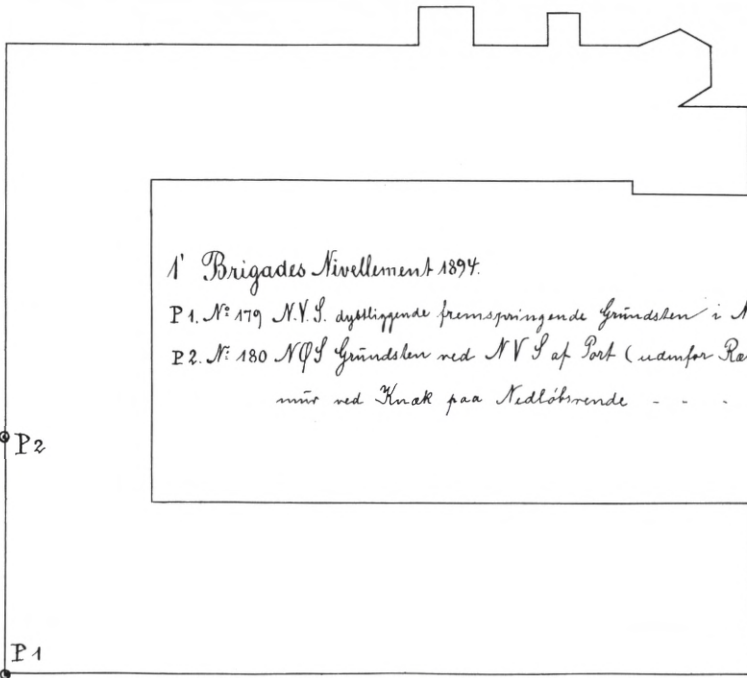 1' Brigades Nivellement 1894.
P 1. Nº 179 N.V.S. dybtliggende fremspringende Grundsten i N
P 2. Nº 180 NØS Grundsten ved NVS af Port (udenfor
mur ved Knæk paa Nedløbsrende - - -
P2
P1